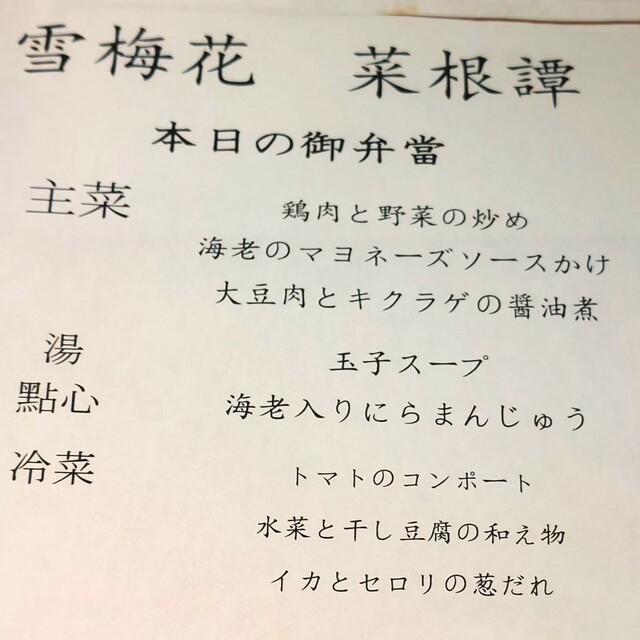 雪梅花 菜根譚
本日の御弁當
主菜 鶏肉と野菜の炒め
海老のマヨネーズソースかけ
大豆肉とキクラゲの醤油煮
湯 玉子スープ
點心 海老入りにらまんじゅう
冷菜 トマトのコンポート
水菜と干し豆腐の和え物
イカとセロリの葱だれ